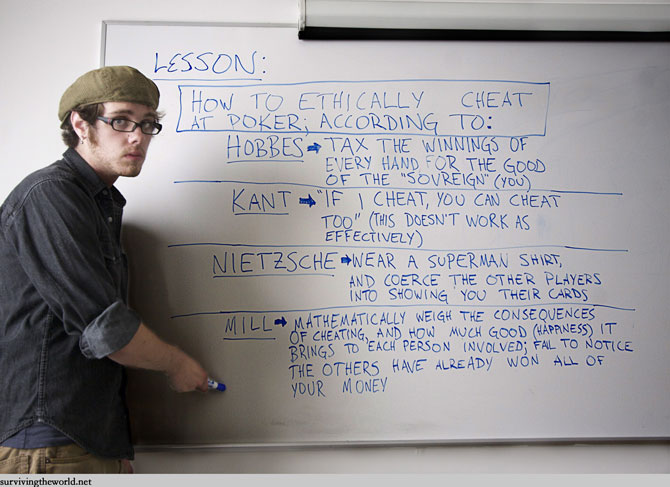 LESSON:
HOW TO ETHICALLY CHEAT
AT POKER; ACCORDING TO:
HOBBES → TAX THE WINNINGS OF
EVERY HAND FOR THE GOOD
OF THE "SOVREIGN" (YOU)
KANT → "IF I CHEAT, YOU CAN CHEAT
TOO" (THIS DOESN'T WORK AS
EFFECTIVELY)
NIETZSCHE → WEAR A SUPERMAN SHIRT,
AND COERCE THE OTHER PLAYERS
INTO SHOWING YOU THEIR CARDS
MILL → MATHEMATICALLY WEIGH THE CONSEQUENCES
OF CHEATING, AND HOW MUCH GOOD (HAPPINESS) IT
BRINGS TO EACH PERSON INVOLVED; FAIL TO NOTICE
THE OTHERS HAVE ALREADY WON ALL OF
YOUR MONEY
survivingtheworld.net